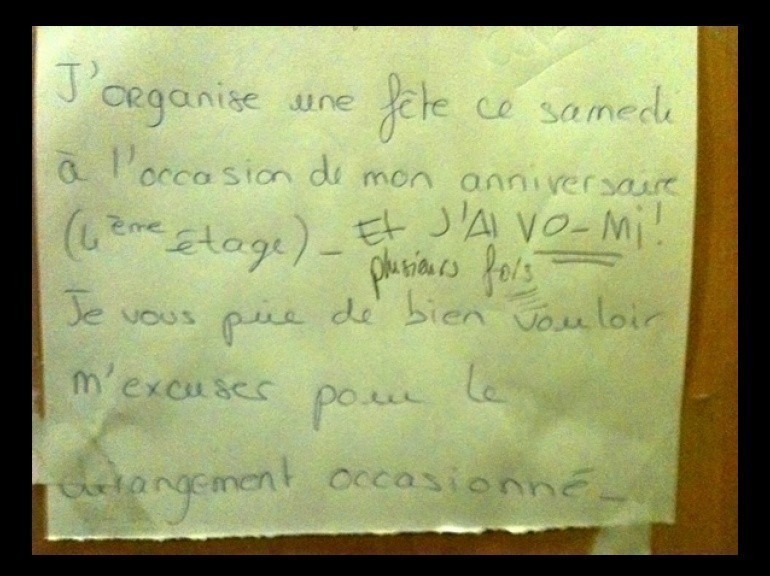 J'organise une fête ce samedi
à l'occasion de mon anniversaire
(4ème étage)_ Et J'AI VO-Mi!
plusieurs fois
Je vous prie de bien vouloir
m'excuser pour le
dérangement occasionné_